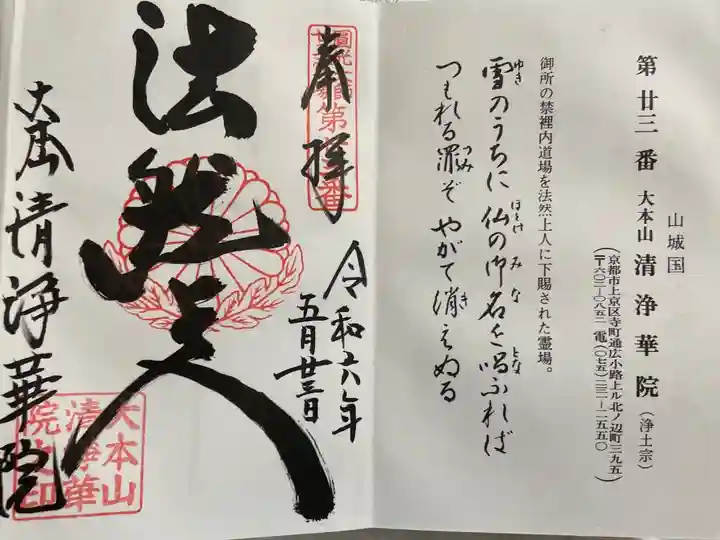 山城国
第廿三番 大本山 清浄華院(浄土宗)
(京都市上京区寺町通広小路上ル北ノ辺町三九五)
(〒六〇二―〇八五二 電(〇七五)二三一―二五五〇)
御所の禁裡内道場を法然上人に下賜された霊場。
雪のうちに 仏の御名を 唱ふれば
ゆき ほとけ みな とな
つもれる罪ぞ やがて消えぬる
つみ き
奉拝
令和六年
五月廿三日
法然上人
大本山 清浄華院
第廿三番
大本山
清浄華
院之印